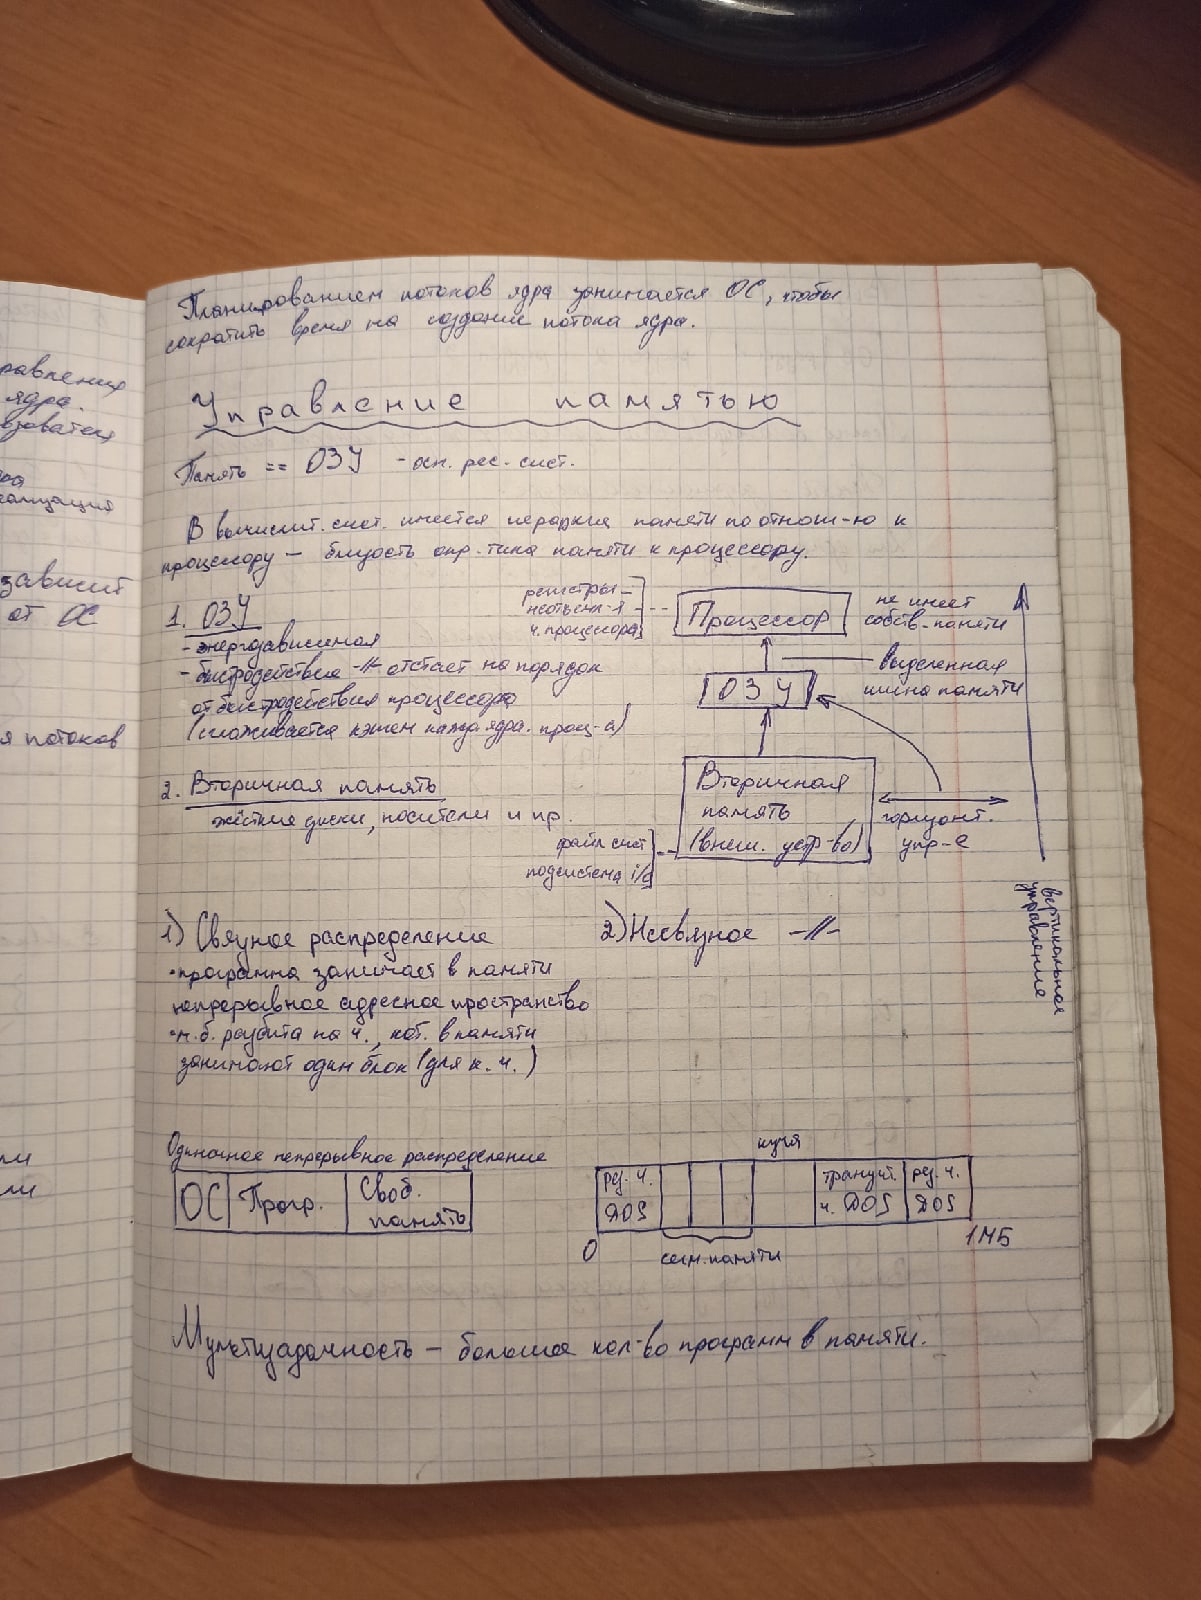 равления
ядра.
зависит
от ОС
я потоков
Планированием потоков ядра занимается ОС, чтобы
сократить время на создание потока ядра.
Управление памятью
Память == ОЗУ - осн. рес. сист.
В вычислит. сист. имеется иерархия памяти по отнош-ю к
процессору — близость опр. типа памяти к процессору.
1. ОЗУ
- энергозависимая
- быстродействие -//- отстает на порядок
от быстродействия процессора
(сглаживается кэшем кажд. ядра. проц-а)
2. Вторичная память
жёсткие диски, носители и пр.
регистры -
неотъемл-я
ч. процессора
Процессор
не имеет
собств. памяти
выделенная
шина памяти
ОЗУ
Вторичная
память
(внеш. устр-во)
горизонт.
упр-е
файл. сист
подсистема i/o
вертикальное
управление
1) Связное распределение
• программа занимает в памяти
непрерывное адресное пространство
• м.б. разбита на ч., кот. в памяти
занимают один блок (для к. ч.)
2) Несвязное -//-
Одиночное непрерывное распределение
ОС Прогр. Своб.
память
куча
рез. ч.
DOS
транзит.
ч. DOS
рез. ч.
DOS
0
сегм. памяти
1 МБ
Мультизадачность — большое кол-во программ в памяти.